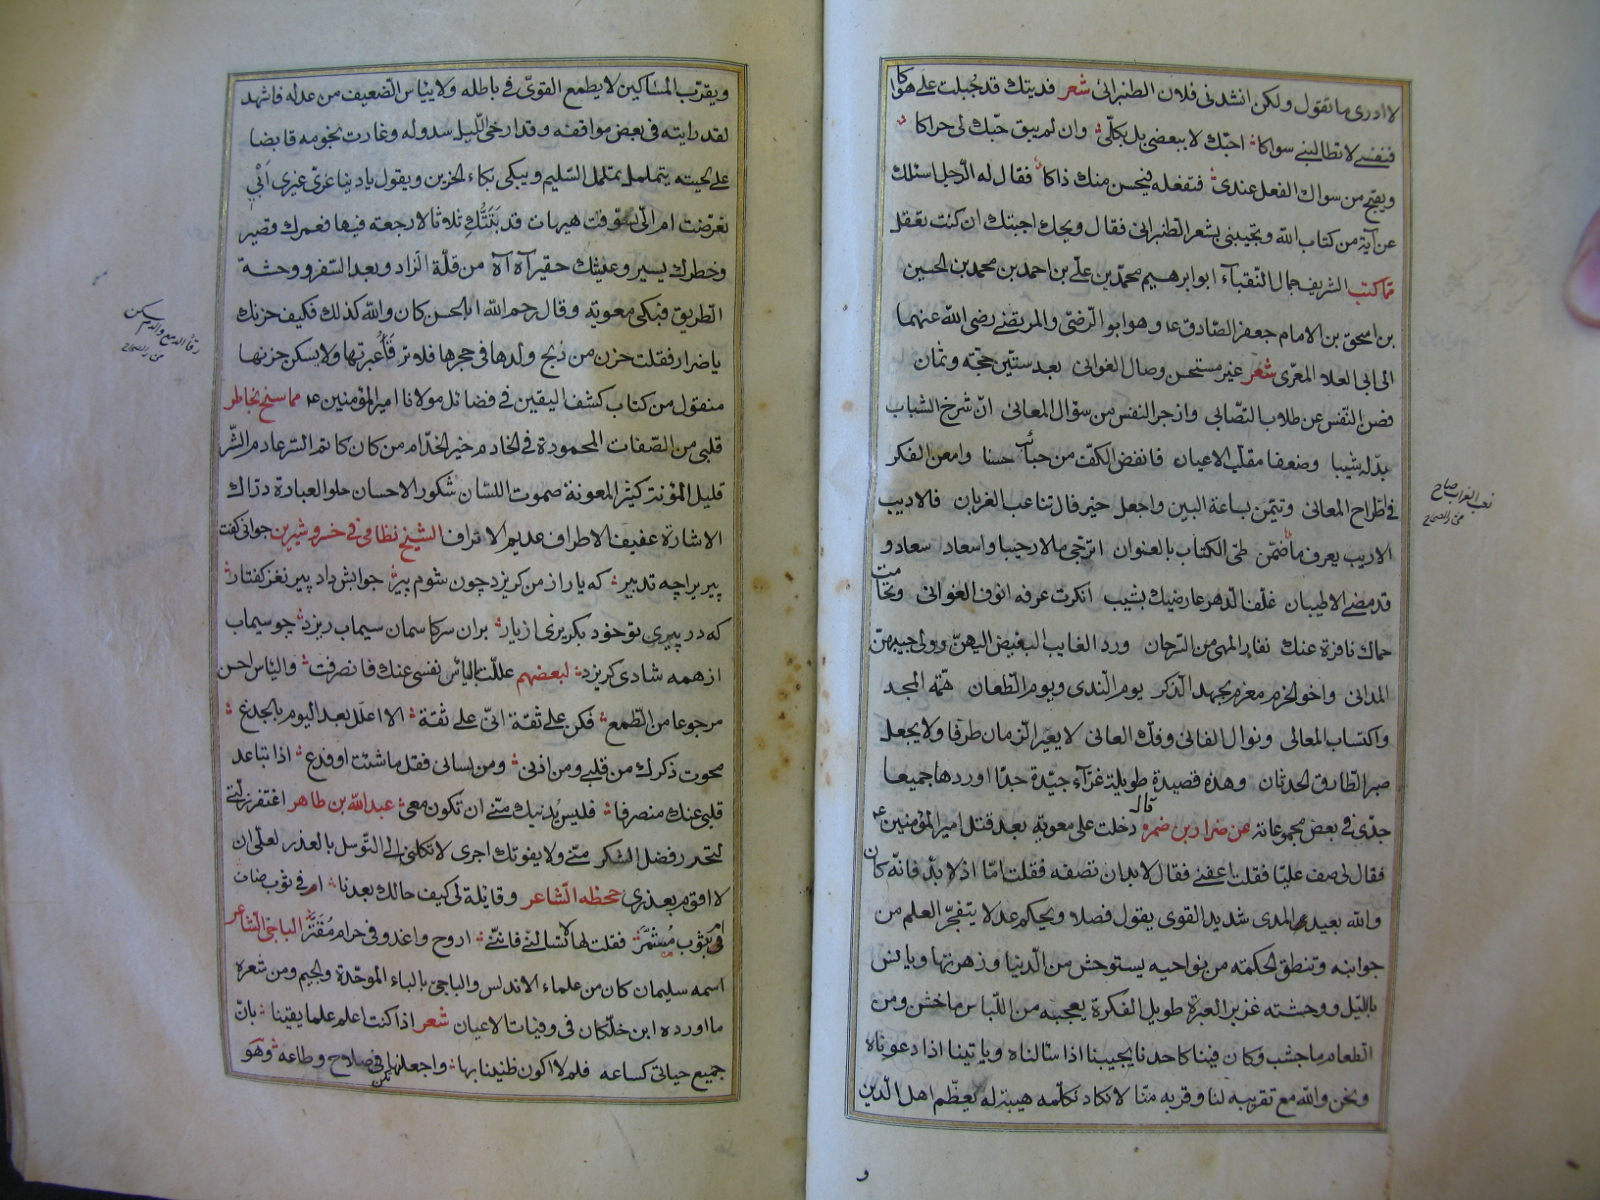 لا ادرى ما تقول ولكن انشدنى فلان الطنبرانى شعر فديتك قد جبلت على هواكا
فنفسى لا تطالبنى سواكا احبّك لا ببعضى بل بكلّى وان لم يبق حبّك لى حراكا
ويقبح من سواك الفعل عندى فتفعله فيحسن منك ذاكا فقال له الرّجل اسئلك
عن آية من كتاب الله وتجيبنى بشعر الطنبرانى فقال ويحك اجبتك ان كنت تعقل
مما كتب الشريف جمال النّقباء ابو ابرهيم محمّد بن علىّ بن احمد بن محمد بن الحسين
بن اسحق بن الامام جعفر الصّادق ع وهو ابو الرّضىّ والمرتضى رضى الله عنهما
الى ابى العلا المعرّى شعر غير مستحسن وصال الغوانى بعد ستّين حجّة وثمان
فصن النّفس عن طلاب التّصابى وازجر النفس من سؤال المعانى انّ شرخ الشباب
بدّله شيبا وضعفا مقلّب الاعيان فانفض الكفّ من حبائب حسنا وامعن الفكر
فى اطّراح المعانى وتيمّن بساعة البين واجعل خير فال تناعب الغربان فالاديب
الاريب يعرف ما ضمّن طىّ الكتاب بالعنوان اترجّى مالا رحيبا واسعاد سعاد و
قد مضى الاطيبان غلّفنا الدّهر عارضيك بشيب انكرت عرفه انوف الغوانى وتحامت
حماك نافرة عنك نفار المهى من السّرحان وردّ الغايب البغيض اليهنّ وولى حبيبهنّ
المدانى واخو الحزم مغرم بجهد الذّكر يوم النّدى ويوم الطّعان همّة المجد
واكتساب المعالى ونوال الفانى وفكّ العانى لا يعير الزّمان طرفا ولا يجعل
صبر الطّارق الحدثان وهذه قصيدة طويلة غرّاء جيّدة جدّا اوردها جميعا
جدّى فى بعض مجموعاته عن ضرار بن ضمره قال دخلت على معوية بعد قتل امير المؤمنين ع
فقال لى صف عليّا فقلت اعفنى فقال لا بد ان تصفه فقلت امّا اذ لا بدّ فانّه كان
والله بعيد المدى شديد القوى يقول فصلا ويحكم عدلا يتفجّر العلم من
جوانبه وتنطق الحكمة من نواحيه يستوحش من الدّنيا وزهرتها ويانس
بالليل ووحشته غزير العبرة طويل الفكرة يعجبه من اللّباس ما خشن ومن
الطعام ما جشب وكان فينا كاحدنا يجيبنا اذا سالناه وياتينا اذا دعوناه
ونحن والله مع تقريبه لنا وقربه منّا لا نكاد نكلّمه هيبة له يعظّم اهل الدّين
و
نعب الغراب صاح
من الصحاح
ويقرّب المساكين لا يطمع القوىّ فى باطله ولا يياس الضّعيف من عدله فاشهد
لقد رايته فى بعض مواقفه وقد ارخى اللّيل سدوله وغارت نجومه قابضا
على لحيته يتململ تململ السّليم ويبكى بكاء الحزين ويقول يا دنيا غرّى غيرى ابى
تعرّضت ام الىّ تشوّقت هيهات قد بتتّك ثلاثا لا رجعة فيها فعمرك قصير
وخطرك يسير وعيشك حقير آه آه من قلّة الزاد وبعد السّفر ووحشة
الطريق فبكى معوية وقال رحم الله ابا الحسن كان والله كذلك فكيف حزنك
يا ضرار فقلت حزن من ذبح ولدها فى حجرها فلا ترقأ عبرتها ولا يسكن حزنها
منقول من كتاب كشف اليقين فى فضائل مولانا امير المؤمنين ع مما سنح بخاطر
قلبى من الصّفات المحمودة فى الخادم خير الخدّام من كان كاتم السّر عادم الشّر
قليل المؤنة كثير المعونة صموت اللسان شكور الاحسان حلو العبارة درّاك
الاشارة عفيف الاطراف عديم الاتراف الشيخ نظامى فى خسرو شيرين جوانى گفت
پيريرا چه تدبير كه يار از من گريزد چون شوم پير جوابش داد پير نغز گفتار
كه در پيرى تو خود بگريزى از يار بران سر كاسمان سيماب ريزد چو سيماب
از همه شادى گريزد لبعضهم عللت بالياس نفسى عنك فانصرفت والياس احسن
مرجوعا من الطّمع فكن على ثقة انّى على ثقة الا اعلّل بعد اليوم بالخدع
محوت ذكرك من قلبى ومن اذنى ومن لسانى فقل ما شئت او فدع اذا تباعد
قلبى عنك منصرفا فليس يدنيك منّى ان تكون معى عبد الله بن طاهر اغتفر زلّتى
لتحرز فضل الشكر منّى ولا يفوتك اجرى لا تكلنى الى التوسل بالعذر لعلّى ان
لا اقوم بعذرى جحظه الشّاعر وقايلة لى كيف حالك بعدنا
ام فى ثوب مشمر فقلت لها لا تسالنى فانّنى اروح واغدو فى حرام مقتّر الباجى الشّاعر
اسمه سليمان كان من علماء الاندلس والباجى بالباء الموحّدة والجيم ومن شعره
ما اورده ابن خلّكان فى وفيات الاعيان شعر اذا كنت اعلم علما يقينا بانّ
جميع حياتى كساعه فلم لا اكون ظنينا بها واجعلها فى صلاح وطاعه وهو
رقأ الدمع والدم سكن
من الصحاح